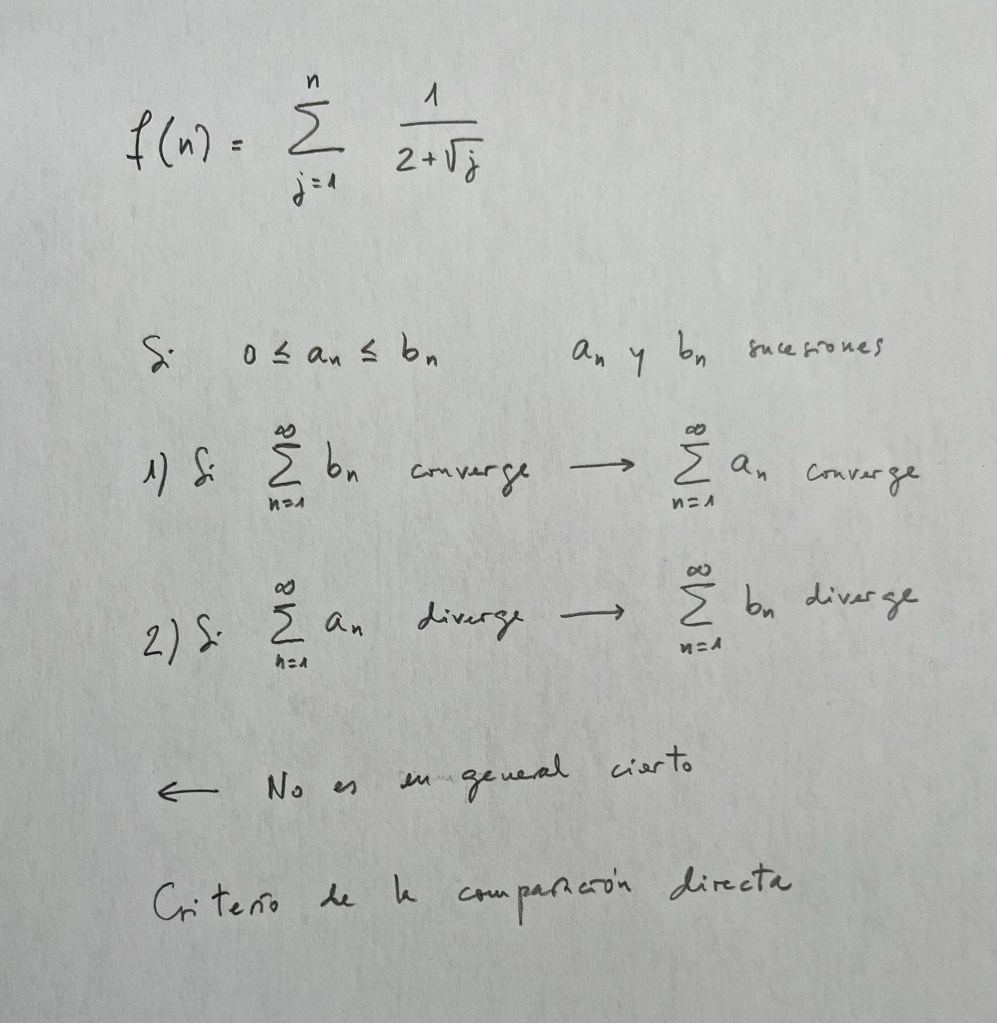 f(n) = ∑_{j=1}^{n} 1/(2+√j)
Si 0 ≤ aₙ ≤ bₙ aₙ y bₙ sucesiones
1) Si ∑_{n=1}^{∞} bₙ converge → ∑_{n=1}^{∞} aₙ converge
2) Si ∑_{n=1}^{∞} aₙ diverge → ∑_{n=1}^{∞} bₙ diverge
← No es en general cierto
Criterio de la comparación directa